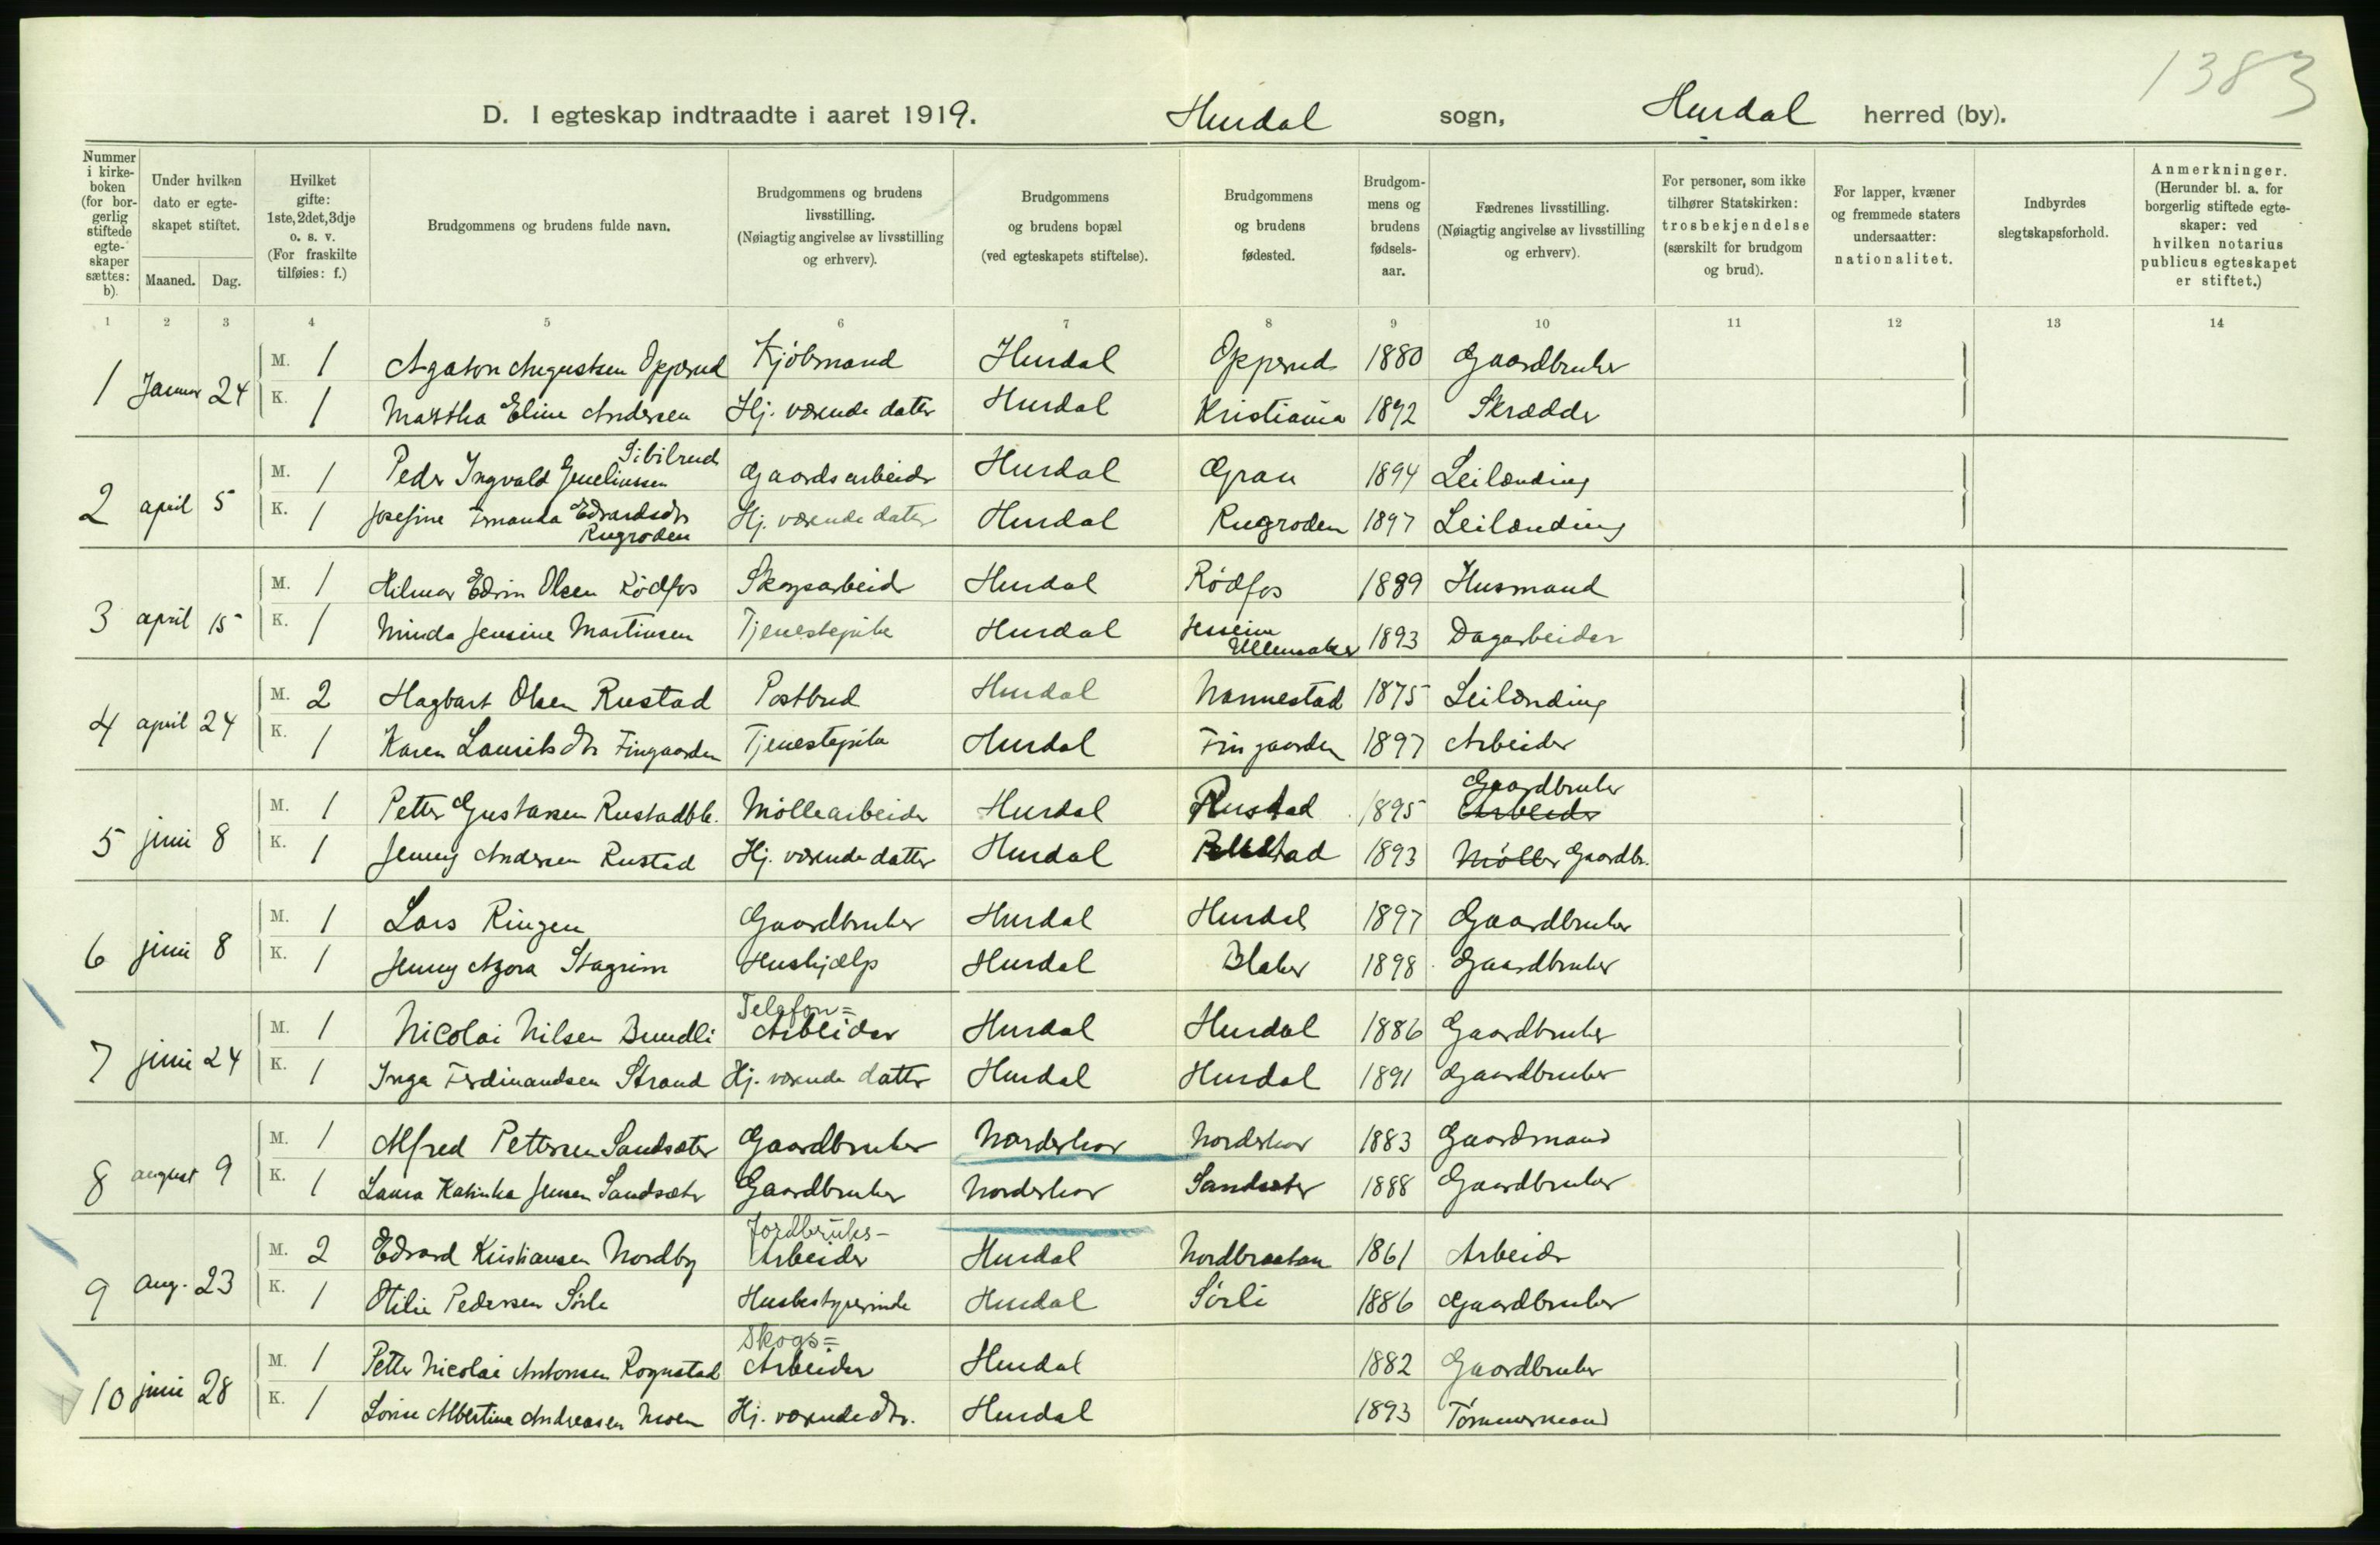 1383
D. I egteskap indtraadte i aaret 1919. Hurdal sogn, Hurdal herred (by).
Nummer i kirke-boken (for bor-gerlig stiftede egte-skaper sættes: b). Under hvilken dato er egte-skapet stiftet. Maaned. Dag. Hvilket gifte: 1ste, 2det, 3dje o. s. v. (For fraskilte tilføies: f.) Brudgommens og brudens fulde navn. Brudgommens og brudens livsstilling. (Nøiagtig angivelse av livsstilling og erhverv). Brudgommens og brudens bopæl (ved egteskapets stiftelse). Brudgommens og brudens fødested. Brudgom-mens og brudens fødsels-aar. Fædrenes livsstilling. (Nøiagtig angivelse av livsstilling og erhverv). For personer, som ikke tilhører Statskirken: trosbekjendelse (særskilt for brudgom og brud). For lapper, kvæner og fremmede staters undersaatter: nationalitet. Indbyrdes slegtskapsforhold. Anmerkninger. (Herunder bl. a. for borgerlig stiftede egte-skaper: ved hvilken notarius publicus egteskapet er stiftet.)
1 2 3 4 5 6 7 8 9 10 11 12 13 14
1 Januar 24 M. 1 Agaton Augustsen Opperud Kjöbmand Hurdal Opperud 1880 Gaardbruker
K. 1 Martha Eline Andersen Hj. værende datter Hurdal Kristiania 1892 Skrædder
Sibilrud
2 april 5 M. 1 Peder Ingvald Gaardsarbeider Hurdal Gran 1894 Leilænding
K. 1 Josefine Amanda Edvardsdtr Hj. værende datter Hurdal Rugroden 1897 Leilænding
Rugroden
3 april 15 M. 1 Hilmar Edvin Olsen Rödfos Skogsarbeider Hurdal Rödfos 1889 Husmand
K. 1 Minda Jensine Martinsen Tjenestepike Hurdal Ullensaker 1893 Dagarbeider
4 april 24 M. 2 Hagbart Olsen Rustad Postbud Hurdal Nannestad 1875 Leilænding
K. 1 Karen Laurits dtr Fingaarden Tjenestepike Hurdal Fingaarden 1897 Arbeider
Gaardbruker
5 juni 8 M. 1 Petter Gustavsen Rustadbk. Möllearbeider Hurdal Rustad 1895 Arbeider
K. 1 Jenny Andersen Rustad Hj. værende datter Hurdal Rustad 1893 Møller Gaardbr.
6 juni 8 M. 1 Lars Ringen Gaardbruker Hurdal Hurdal 1897 Gaardbruker
K. 1 Jenny Agora Stagrim Hushjælp Hurdal Blaker 1898 Gaardbruker
Telefon=
7 juni 24 M. 1 Nicolai Nilsen Bundli Arbeider Hurdal Hurdal 1886 Gaardbruker
K. 1 Inga Ferdinandsen Strand Hj. værende datter Hurdal Hurdal 1891 Gaardbruker
8 august 9 M. 1 Alfred Pettersen Sandsæter Gaardbruker Norderhov Norderhov 1883 Gaardmand
K. 1 Laura Katinka Jensen Sandsæter Gaardbruker Norderhov Sandsæter 1888 Gaardbruker
Jordbruks-
9 aug. 23 M. 2 Edvard Kristiansen Nordby Arbeider Hurdal Nordbraatan 1861 Arbeider
K. 1 Otilie Pedersen Sörli Husbestyrerinde Hurdal Sörli 1886 Gaardbruker
Skogs=
10 juni 28 M. 1 Petter Nicolai Antonsen Rognstad Arbeider Hurdal 1882 Gaardbruker
K. 1 Lovise Albertine Andreasen Moen Hj. værende dtr. Hurdal 1893 Tömmermand